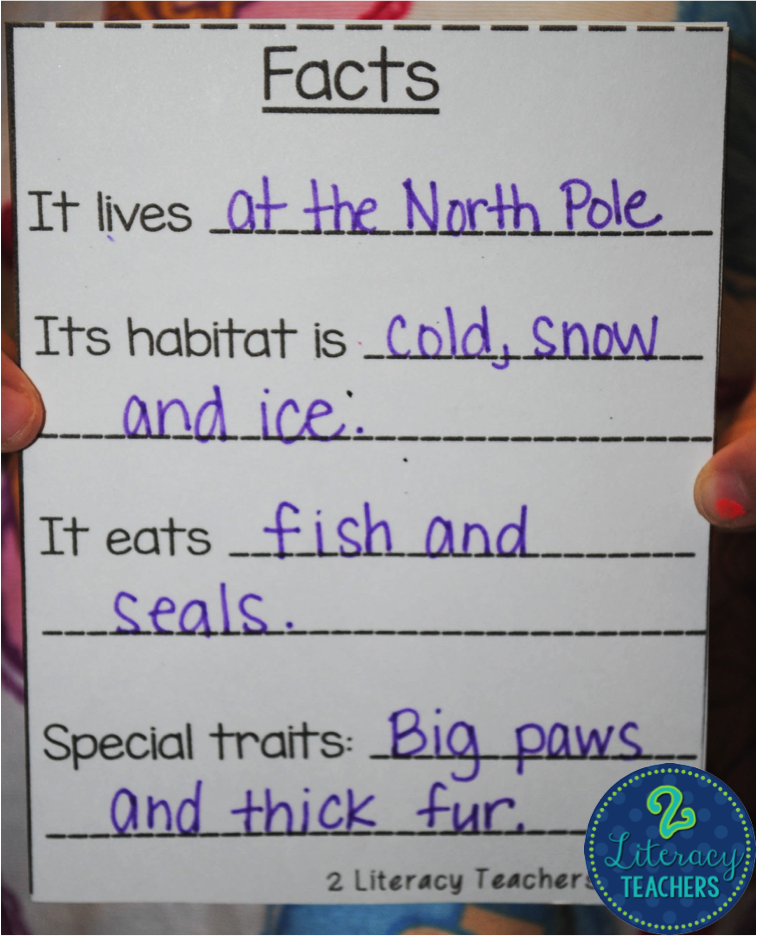 Facts
It lives at the North Pole
Its habitat is cold, snow
and ice.
It eats fish and
seals.
Special traits: Big paws
and thick fur.
2 Literacy Teachers
2
Literacy
TEACHERS